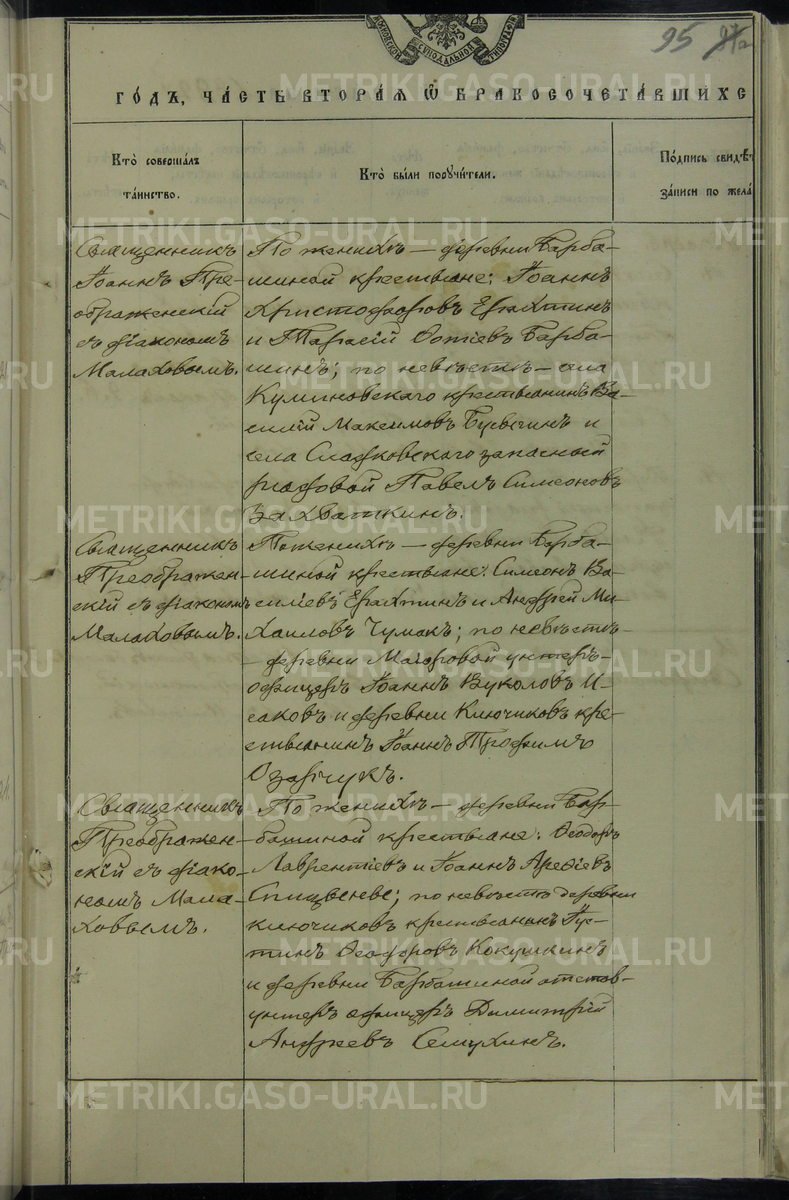 МОСКОВСКОЙ СѴНОДАЛЬНОЙ ТИПОГРАФІИ
95
ГО́ДЪ, ЧА́СТЬ ВТОРА́Я Ѽ БРАКОСОЧЕТА́ВШИХС
Кто̀ соверша́лъ
та́инство.
Кто̀ бы́ли поручи́тели.
По́дпись свидѣ́т
за́писи по жела́
Священникъ
Іоаннъ Пре-
ображенскій
съ діакономъ
Малаховымъ.
По женихѣ — деревни Барба-
шиной крестьяне: Іоаннъ
Христофоровъ Ерахтинъ
и Тарасій Фотіевъ Барба-
шинъ; по невѣстѣ — села
Куминовскаго крестьянинъ Ва-
силій Максимовъ Бувечинъ и
села Сладковскаго запасный
рядовой Павелъ Симеоновъ
Захваткинъ.
Священникъ
Преображен-
скій съ діакономъ
Малаховымъ.
По женихѣ — деревни Барба-
шиной крестьяне: Симеонъ Ва-
силіевъ Ерахтинъ и Андрей Ми-
хаиловъ Чумакъ; по невѣстѣ-
— деревни Маіоровой унтеръ-
офицеръ Іоаннъ Вуколовъ И-
саковъ и деревни Ключиковъ кре-
стьянинъ Іоаннъ Трофимъ
Озарчукъ.
Священникъ
Преображен-
скій съ діако-
номъ Мала-
ховымъ.
По женихѣ — деревни Бар-
башиной крестьяне: Феодоръ
Лаврентіевъ и Іоаннъ Арефіевъ
по невѣстѣ деревни
Ключиковъ крестьянинъ Іус-
тинъ Феодоровъ Кокушкинъ
и деревни Барбашиной отстав-
унтеръ офицеръ Димитрій
Андреевъ Семухинъ.
METRIKI.GASO-URAL.RU